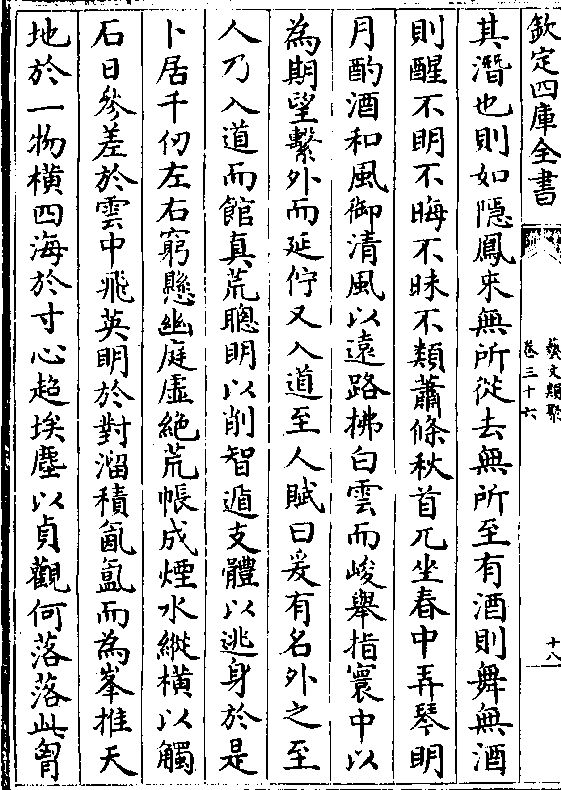 欽定四庫全書
藝文類聚
卷三十六
十八
其潛也則如隱鳳來無所從去無所至有酒則舞無酒
則醒不明不晦不昧不類蕭條秋首兀坐春中弄琴明
月酌酒和風御清風以遠路拂白雲而峻舉指寰中以
為期望繫外而延佇又入道至人賦曰爰有名外之至
人乃入道而館真荒聰明以削智遁支體以逃身於是
卜居千仞左右窮懸幽庭虛絶荒帳成煙水縱橫以觸
石日參差於雲中飛英明於對溜積氤氳而為峯推天
地於一物橫四海於寸心超埃塵以貞觀何落落此胷